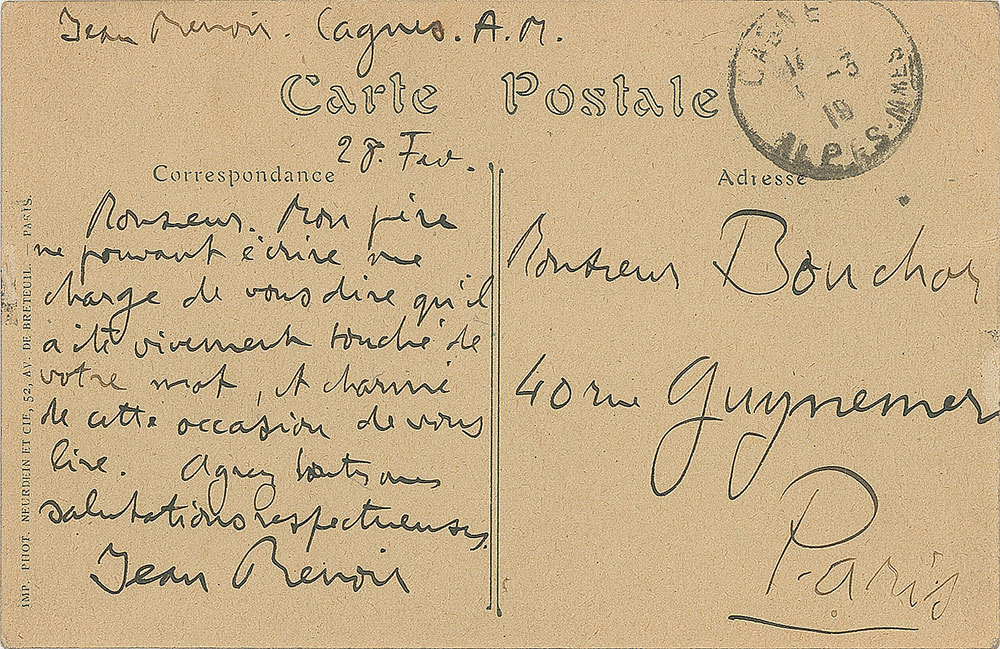 Jean Renoir. Cagnes. A. M.
Carte Postale
CAGNES
-3
19
ALPES-Mmes
28. Fev.
Correspondance
Monsieur. Mon père
ne pouvant écrire me
charge de vous dire qu'il
a été vivement touché de
votre mot, et charmé
de cette occasion de vous
lire. Agréez toutes mes
salutations respectueuses.
Jean Renoir
Adresse
Monsieur Bouchor
40 rue Guynemer
Paris
IMP. PHOT. NEURDEIN ET CIE, 52, AV. DE BRETEUIL — PARIS.